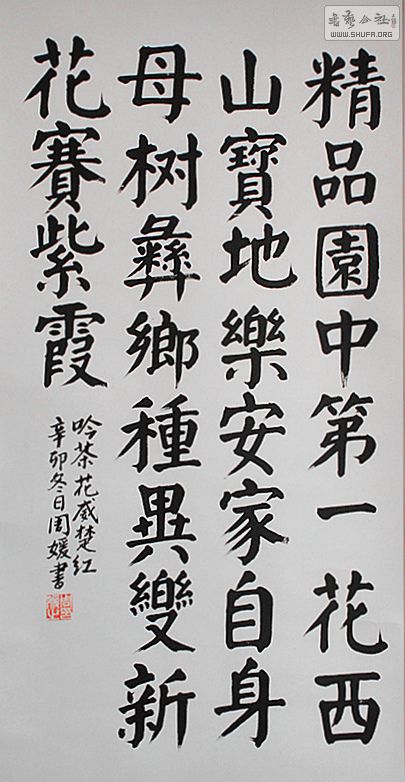 精品園中第一花西
山寶地樂安家自身
母树彝鄉種異變新
花賽紫霞
吟茶花威楚红
辛卯冬日周媛書
書藝公社
WWW.SHUFA.ORG